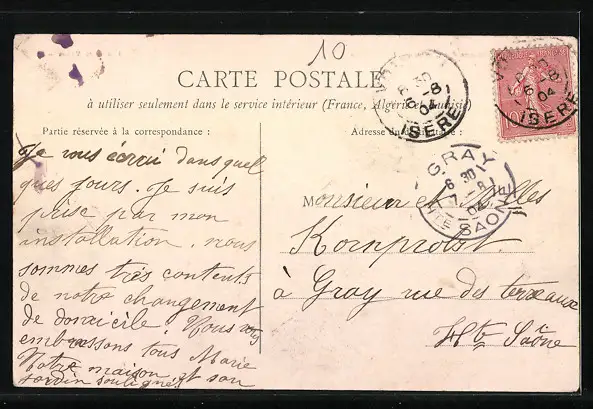 10
CARTE POSTALE
à utiliser seulement dans le service intérieur (France, Algérie et Tunisie)
Partie réservée à la correspondance :
Adresse du destinataire :
ISÈRE
6 30
6 -8
04
ISÈRE
GRAY
6 30
7 -8
04
HTE SAONE
Je vous écrui dans quel
ques jours. Je suis
prise par mon
installation. nous
sommes très contents
de notre changement
de domicile. Nous vous
embrassons tous Marie
Notre maison et son
jardin soulignés
Monsieur et Mlles
Kornprobst
à Gray rue des terreaux
Hte Saône